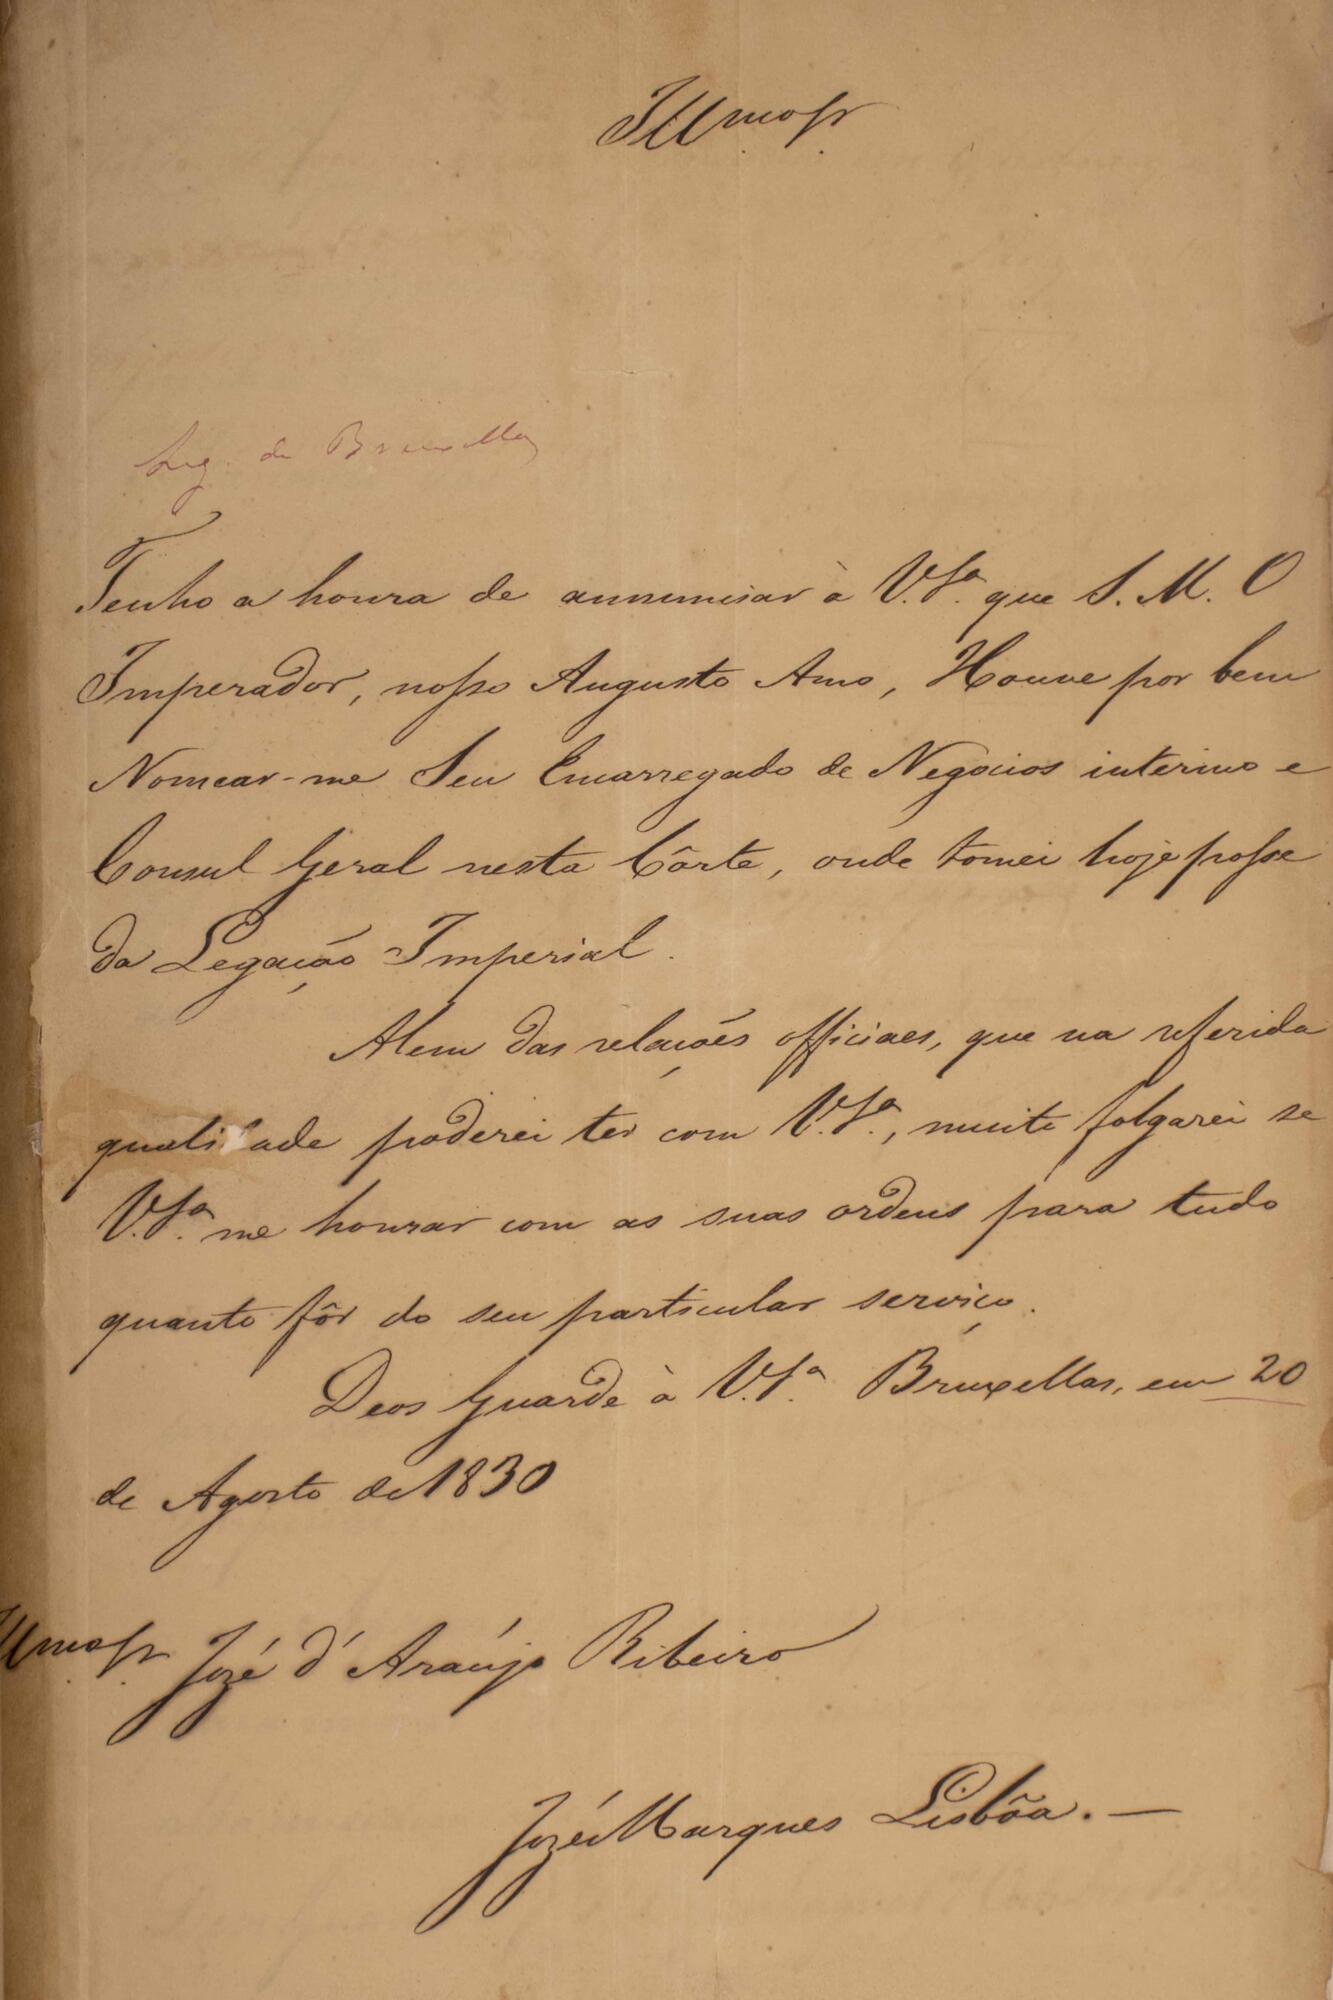 Illmo Sr.
Leg. de Bruxellas
Tenho a honra de annunciar à V.Sª. que S. M. O
Imperador, nosso Augusto Amo, Houve por bem
Nomear-me Seu Encarregado de Negócios interino e
Consul Geral nesta Côrte, onde tomei hoje posse
da Legação Imperial.
Alem das relações officiaes, que na referida
qualidade poderei ter com V.Sª., muito folgarei se
V.Sª. me honrar com as suas ordens para tudo
quanto fôr do seu particular serviço.
Deos Guarde à V.Sª. Bruxellas, em 20
de Agosto de 1830
Illmo Sr. Jozé d'Araújo Ribeiro
Jozé Marques Lisbôa. —